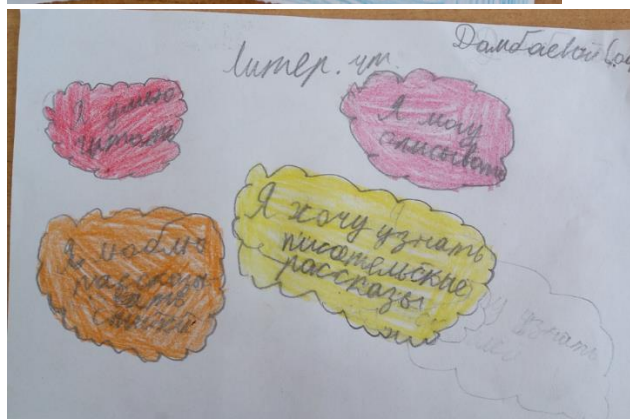 Дамбаевой
Литер. чт.
Я умею
читать
Я могу
описывать
Я люблю
рассказы
вать
стихи
Я хочу узнать
писательские
рассказы
узнать